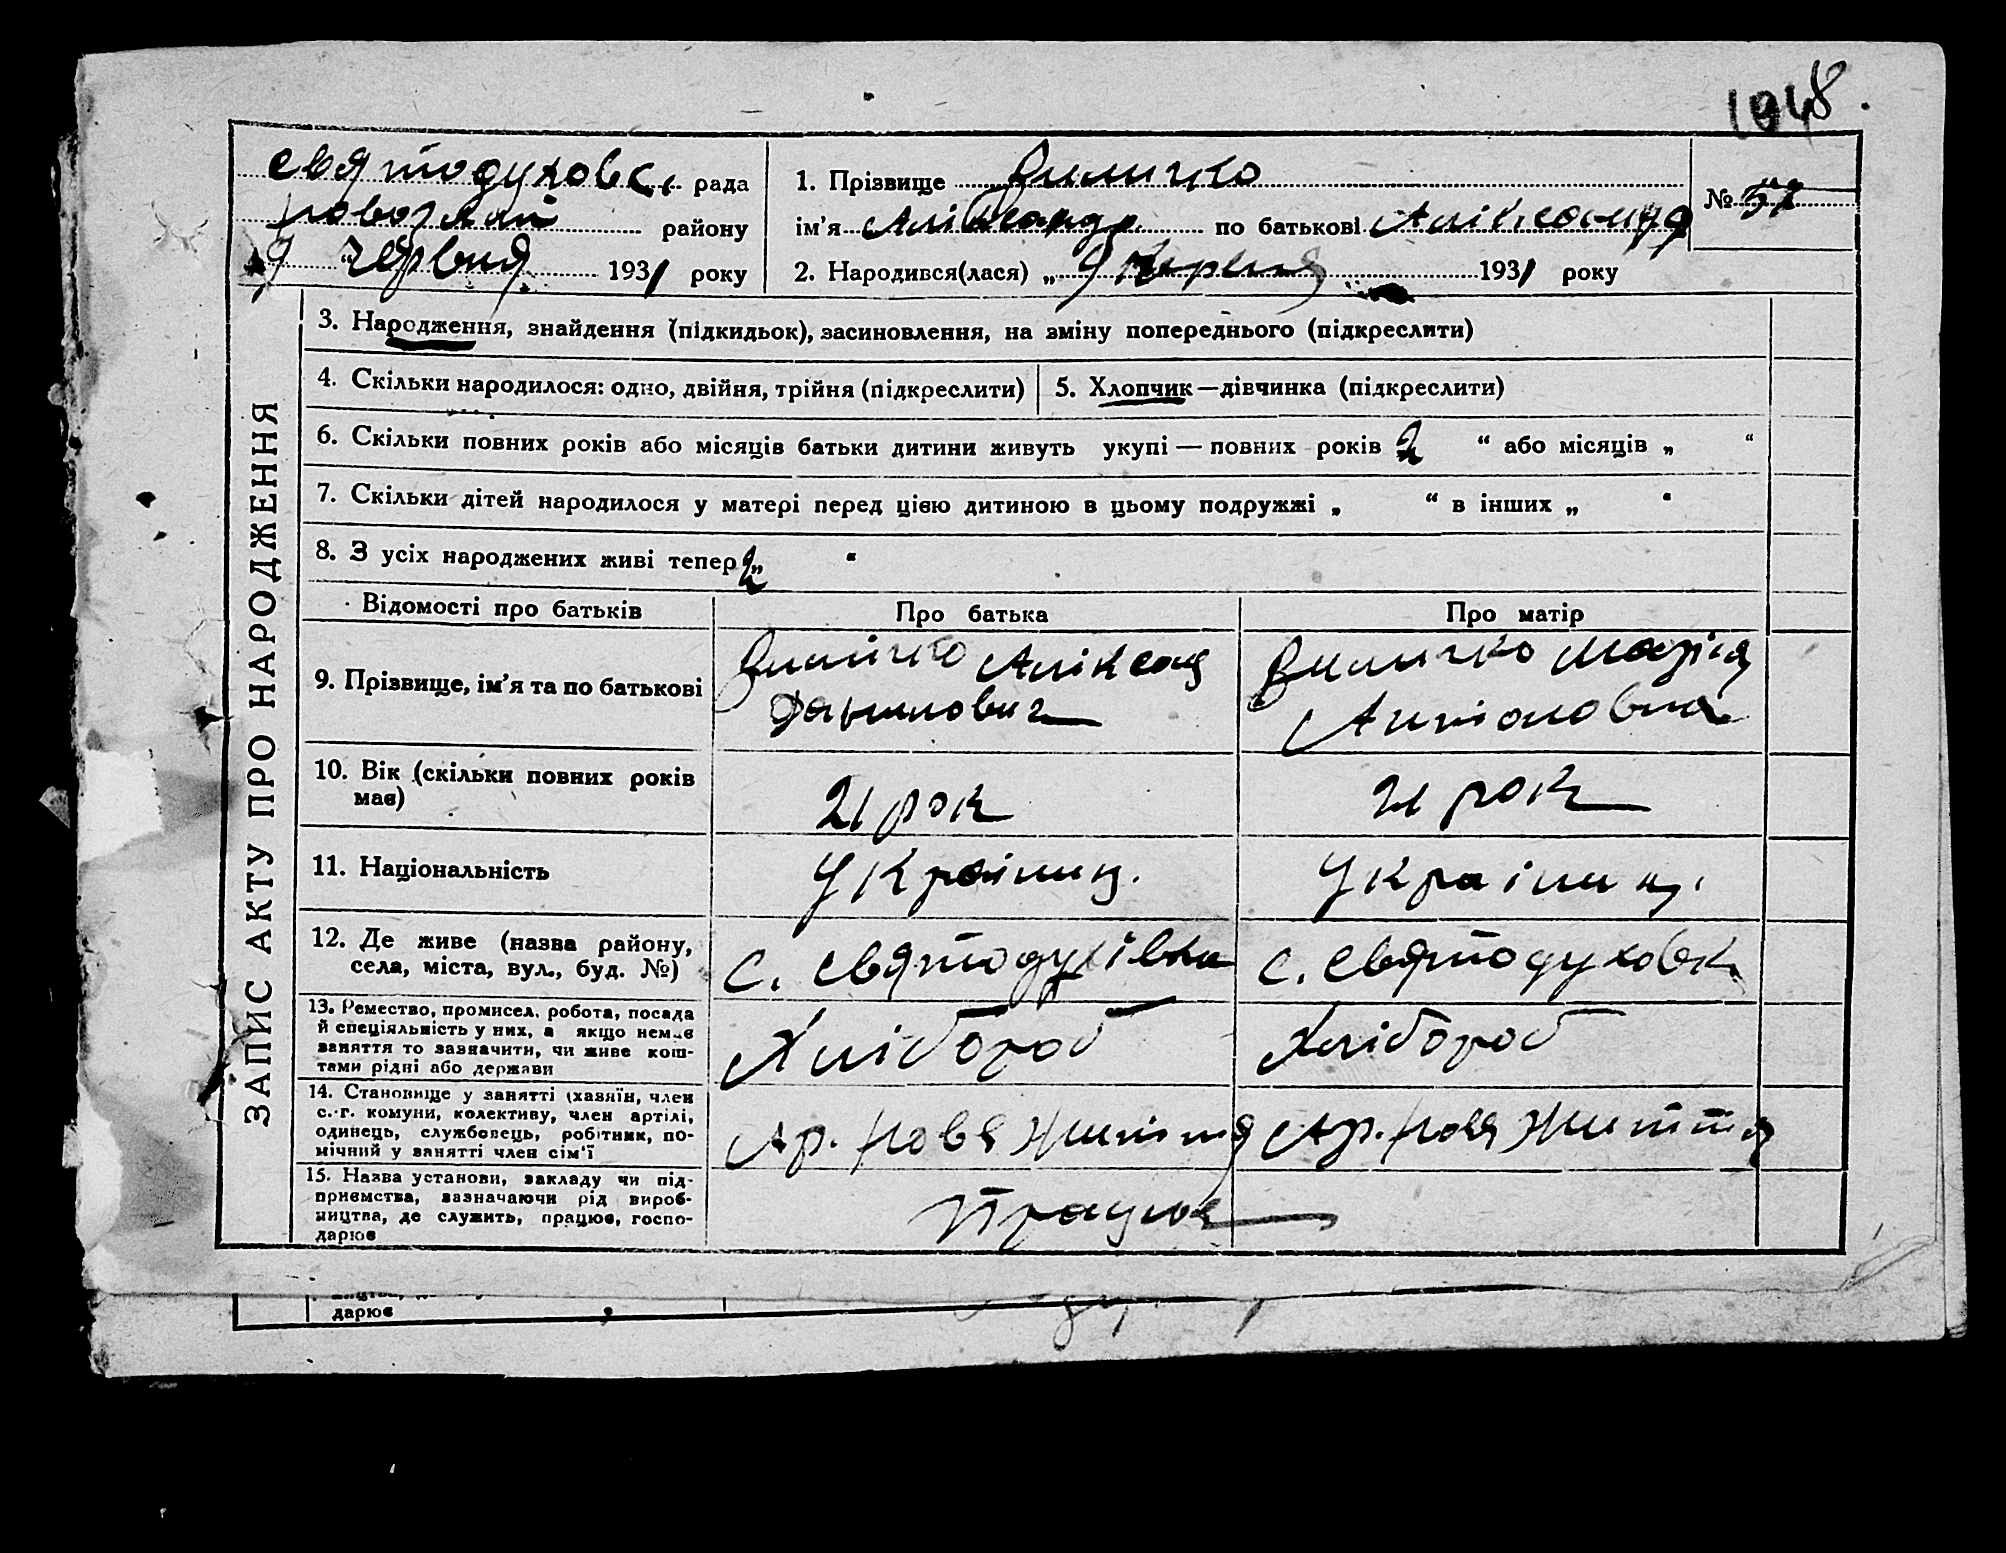 1948.
Святодуховс. рада
района
9 " червня 1931 року
1. Прізвище Виличко
ім'я Аліксандр по батькові Аліксандр
№ 57
2. Народився(лася) „ 9 Червня 1931 року
3. Народження, знайдення (підкидьок), засиновлення, на зміну попереднього (підкреслити)
4. Скільки народилося: одно, двійня, трійня (підкреслити)
5. Хлопчик—дівчинка (підкреслити)
6. Скільки повних років або місяців батьки дитини живуть укупі — повних років 2 “ або місяців „ “
7. Скільки дітей народилося у матері перед цією дитиною в цьому подружжі „ “ в інших „ “
8. З усіх народжених живі тепер „ 2 “
Відомості про батьків
Про батька
Про матір
9. Прізвище, ім'я та по батькові
Вилічко Аліксанд
Данилович
Виличко Марія
Антоновна
10. Вік (скільки повних років
має)
21 рок
21 рок
11. Національність
Українц.
Українц.
12. Де живе (назва району,
села, міста, вул., буд. №)
с. Святодухівка
с. Святодуховк
13. Ремество, промисел, робота, посада
й спеціяльність у них, а якщо немає
заняття то зазначити, чи живе кош-
тами рідні або держави
Хлібороб
Хлібороб
14. Становище у занятті (хазяїн, член
с.-г. комуни, колективу, член артілі,
одинець, службовець, робітник, по-
мічний у занятті член сім'ї
Ар. Нове життя
Ар. Нове життя
15. Назва установи, закладу чи під-
приємства, зазначаючи рід вироб-
ництва, де служить, працює, госпо-
дарює
Працює
ЗАПИС АКТУ ПРО НАРОДЖЕННЯ
дарює